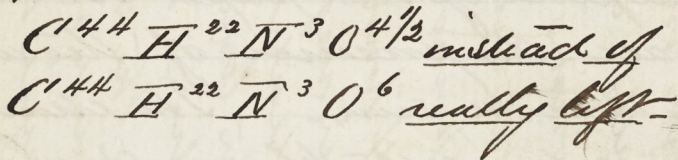 C⁴⁴ H²² N³ O⁴½ instead of
C⁴⁴ H²² N³ O⁶ really left.